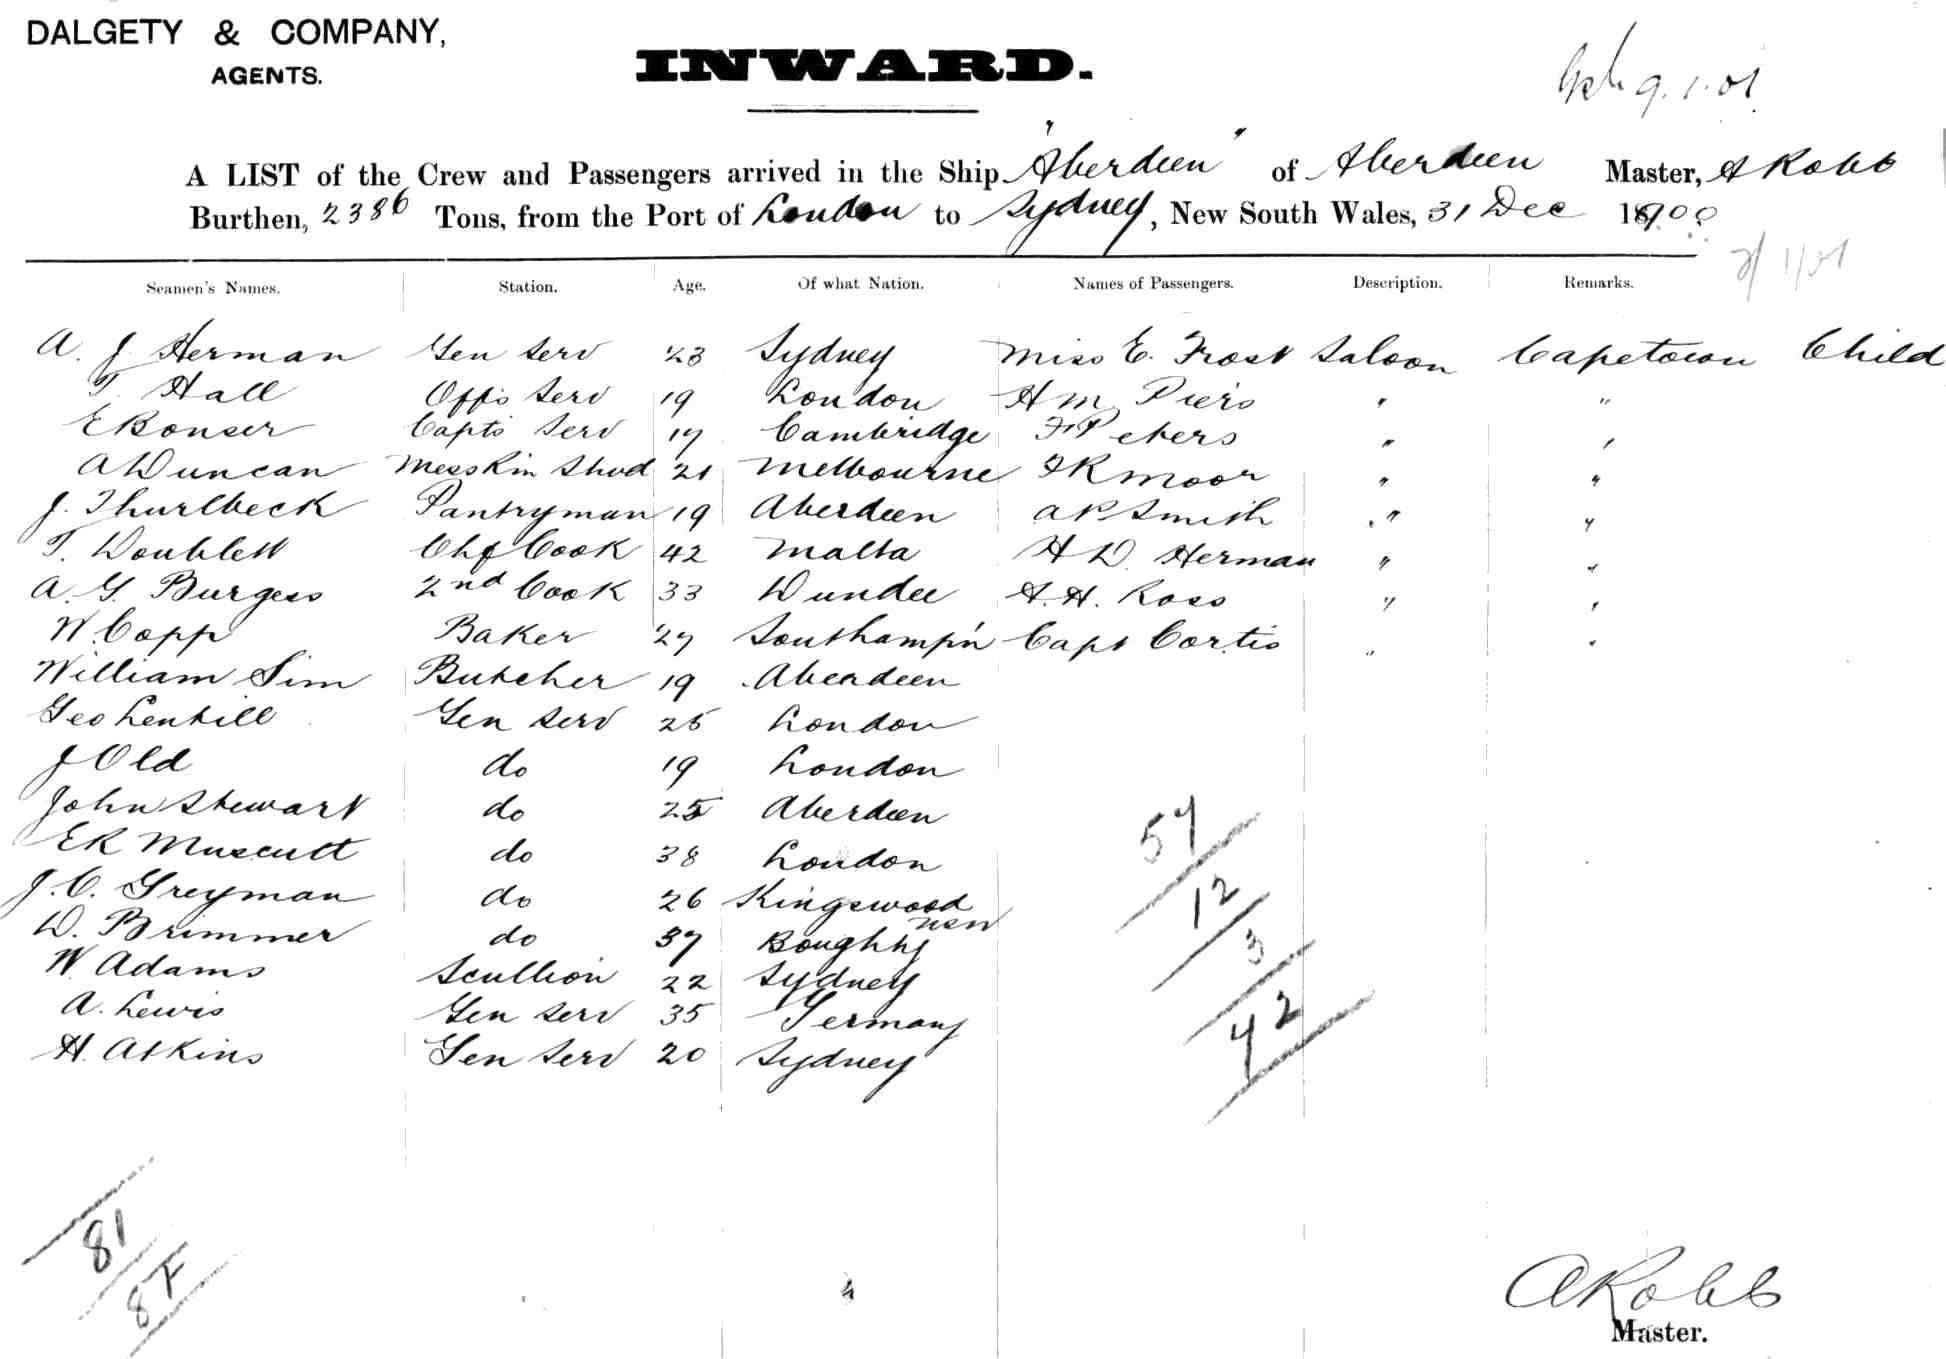 DALGETY & COMPANY,
AGENTS.
INWARD.
9.1.01
A LIST of the Crew and Passengers arrived in the Ship "Aberdeen" of Aberdeen Master, A Robb
Burthen, 2386 Tons, from the Port of London to Sydney, New South Wales, 31 Dec 1900
1/01
Seamen's Names. Station. Age. Of what Nation. Names of Passengers. Description. Remarks.
A. J. Herman Gen Serv 23 Sydney Miss E. Frost Saloon Capetown Child
T. Hall Offs Serv 19 London H M Piers " "
E Bonser Capts Serv 17 Cambridge F Peters " "
A Duncan Mess Rm Stwd 21 Melbourne F R Moor " "
J. Thurlbeck Pantryman 19 Aberdeen A P Smith " "
T. Doublett Chf Cook 42 Malta H D. Herman " "
A. G. Burgess 2nd Cook 33 Dundee A. H. Ross " "
W. Copp Baker 27 Southamp'n Capt Cortis " "
William Sim Butcher 19 Aberdeen
Geo Lenhill Gen Serv 25 London
J Old do 19 London
John Stewart do 25 Aberdeen
E R Muscutt do 38 London
J. C. Greyman do 26 Kingswood
NSW
D. Brimmer do 37 Boughty
W. Adams Scullion 22 Sydney
A. Lewis Gen Serv 35 Germany
H. Atkins Gen Serv 20 Sydney
57
12
3
72
81
8
A Robb
Master.